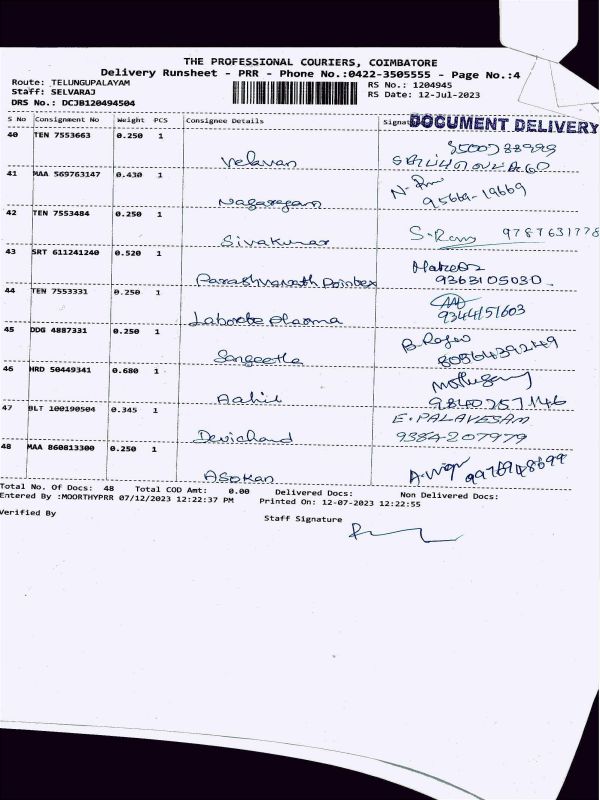 THE PROFESSIONAL COURIERS, COIMBATORE
Delivery Runsheet - PRR - Phone No.:0422-3505555 - Page No.:4
Route: TELUNGUPALAYAM
Staff: SELVARAJ
DRS No.: DCJB120494504
RS No.: 1204945
RS Date: 12-Jul-2023
S No Consignment No Weight PCS Consignee Details
DOCUMENT DELIVERY
40 TEN 7553663 0.250 1
Velavan
41 MAA 569763147 0.430 1
Nagaragam
95669-19669
42 TEN 7553484 0.250 1
Sivakumar S. Ram 9787631778
43 SRT 611241240 0.520 1
9363105030
44 TEN 7553331 0.250 1
9344151603
45 DDG 4887331 0.250 1
Sangeetha
46 HRD 50449341 0.680 1
Aahil
47 BLT 100190504 0.345 1
E. PALAVESAM
Devichand 9384207979
48 MAA 860813300 0.250 1
Asokan
Total No. Of Docs: 48 Total COD Amt: 0.00 Delivered Docs: Non Delivered Docs:
Entered By :MOORTHYPRR 07/12/2023 12:22:37 PM Printed On: 12-07-2023 12:22:55
Verified By Staff Signature